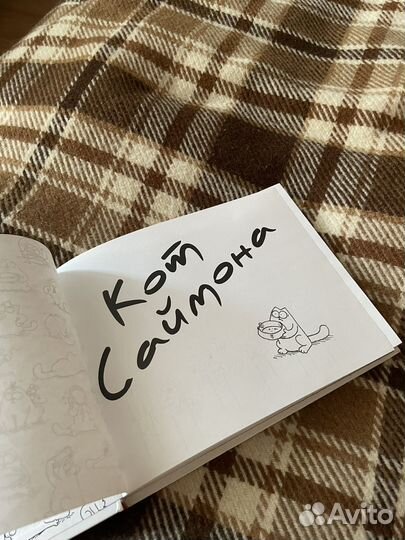 Кот
Саймона
Avito